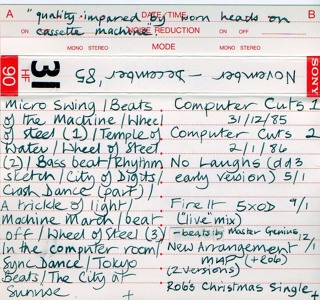 A DATE/TIME B
"quality impaired by worn heads on
ON NOISE REDUCTION ON OFF
cassette machine"
MONO STEREO MODE MONO STEREO
90 HF 31 November - December '85 SONY
Micro Swing / Beats
of the Machine / Wheel
of steel (1) / Temple of
Water / Wheel of Steel
(2) / Bass beat / Rhythm
sketch / City of Digits /
Crash Dance (part) /
A trickle of light /
Machine March / beat
off / Wheel of Steel (3)
In the computer room /
Sync Dance / Tokyo
Beats / The City at
Sunrise +
Computer Cuts 1
31/12/85
Computer Cuts 2
2/1/86
No Laughs (dd3
early version) 5/1
Fire It 5xOD 9/1
("live mix)
- beats by Master Genius 12/1
New Arrangement /1
MAP (+Rob)
(2 versions)
Rob's Christmas Single +